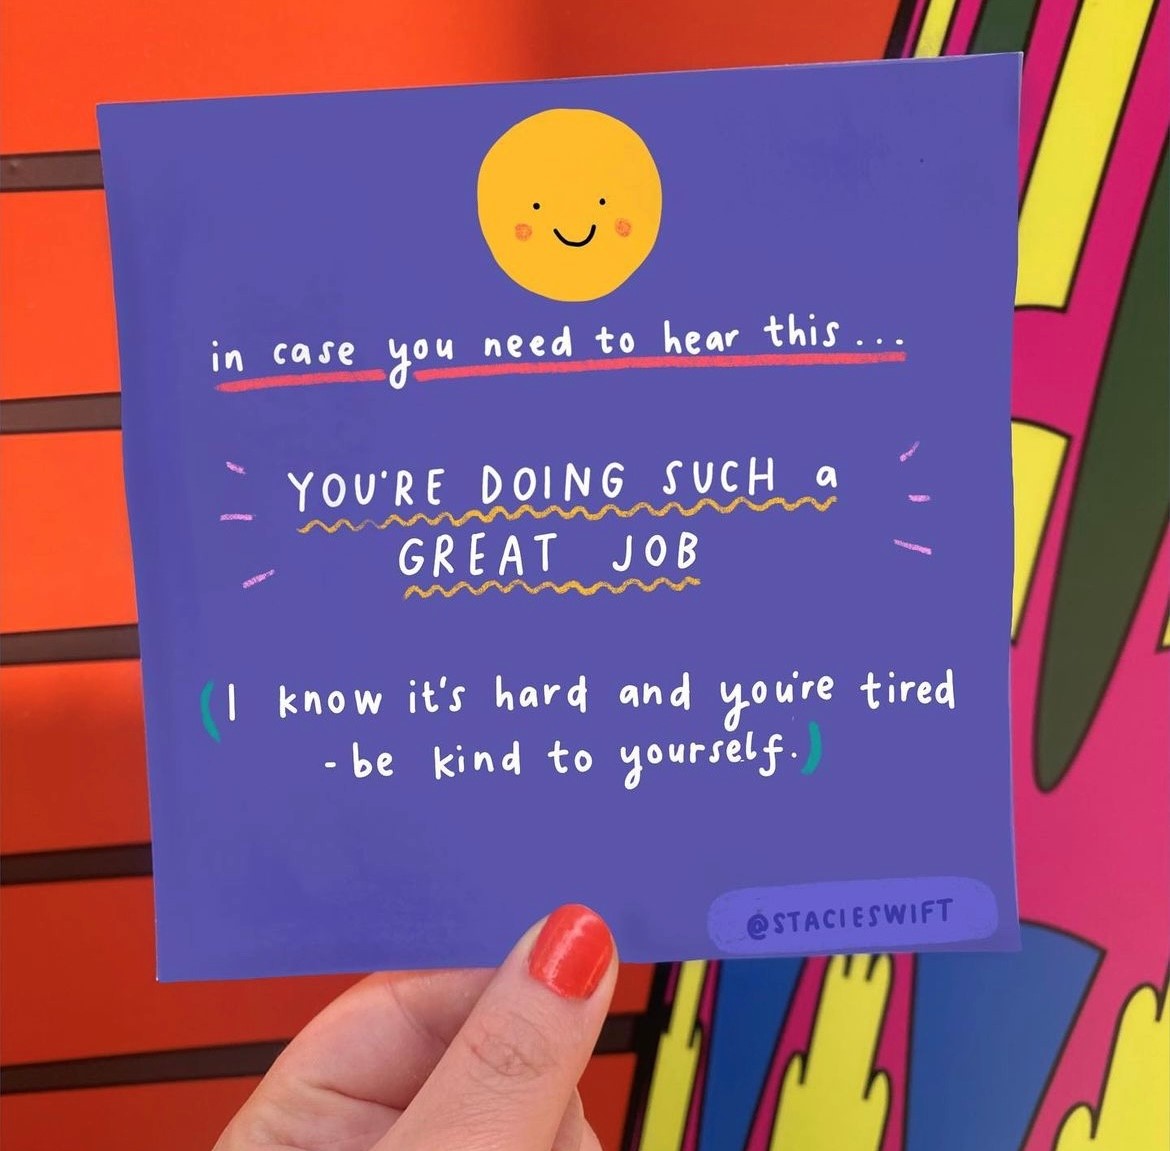 in case you need to hear this...
YOU'RE DOING SUCH a
GREAT JOB
(I know it's hard and you're tired
- be kind to yourself.)
@STACIESWIFT